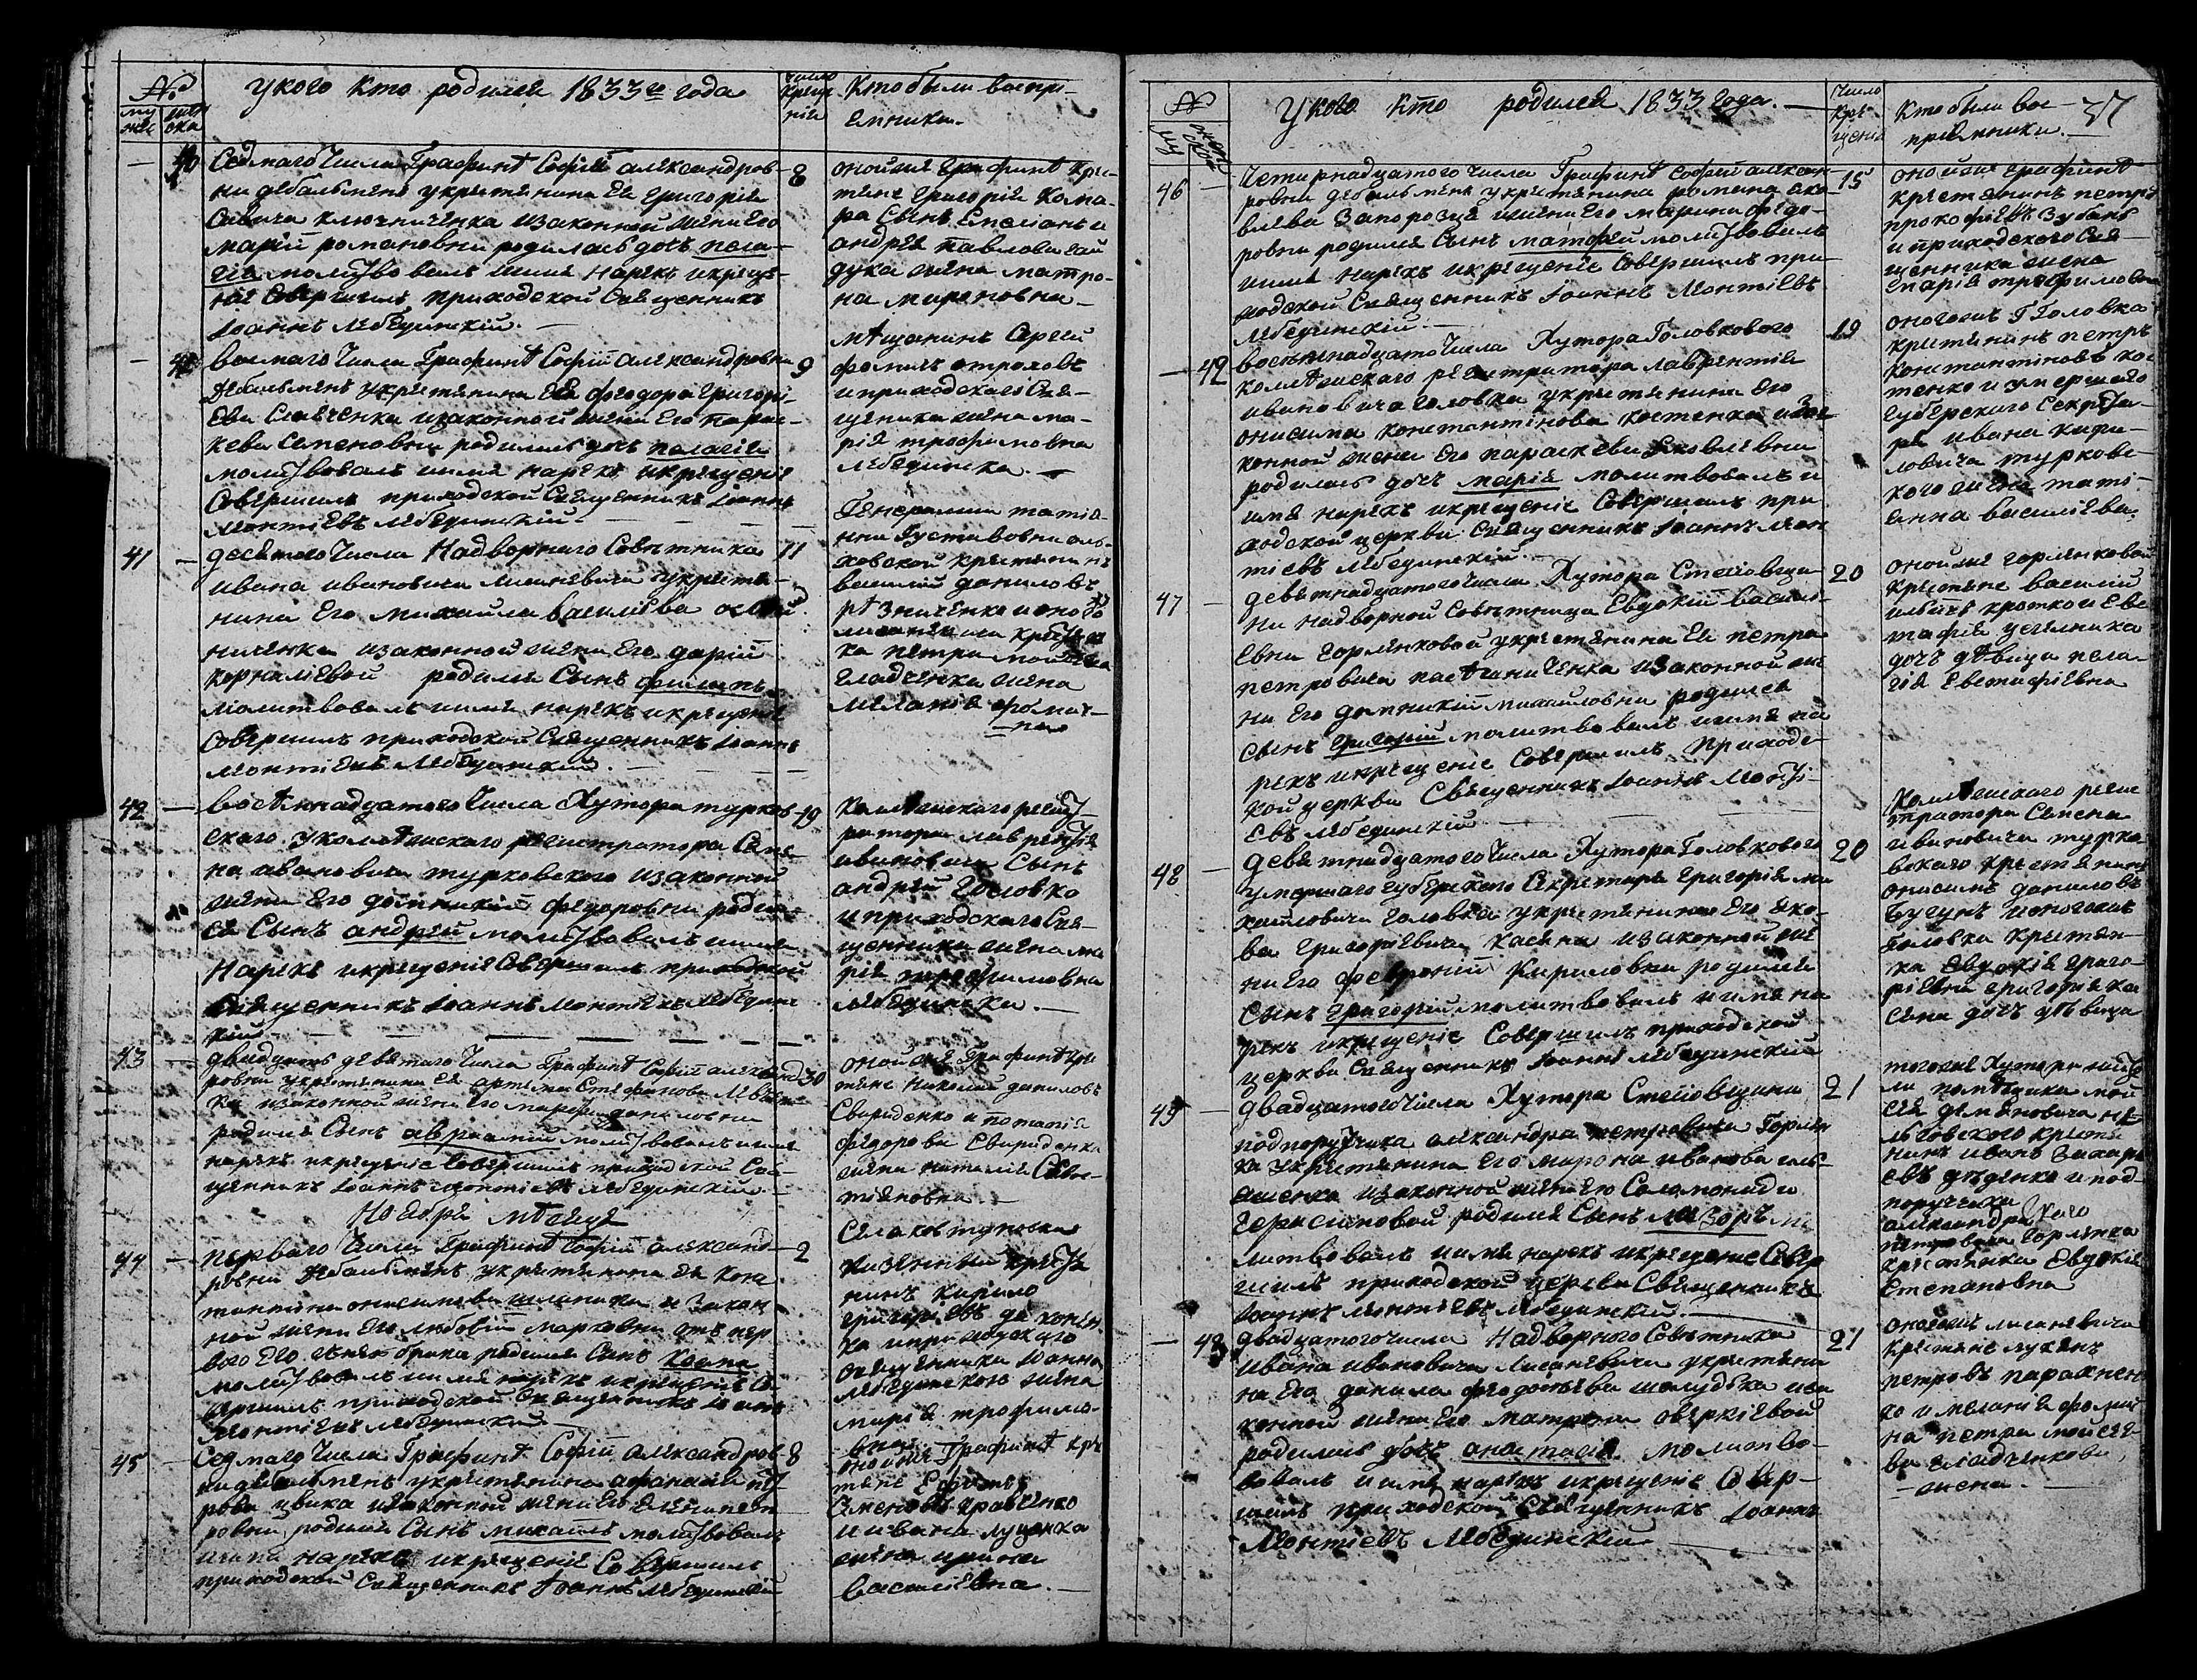 №
му
жес
жен
ска
У кого кто родился 1833го года
число
крещ
нія
Кто были воспрі-
емники.
40
Седмаго числа Графинѣ Софіи александров-
ны дебальменъ у крестянина Ея Григорія
Савича ключниченка и законной жены Его
маріи романовны родилась дочь пела-
гія молитвовалъ и имя нарекъ и креще-
ніе Совершилъ приходской Священникъ
Іоаннъ Лебединскій.
8
оной же Графинѣ кре-
стяне Григорій кома-
ра Сынъ Емеліанъ и
андрея павлова гай
дука жена матро-
на мироновна
восмаго числа Графинѣ Софіи александровны
дебальменъ у крестянина Ея феодора Григорі-
ева Славченка и законной жены Его парас-
кеви Семеновны родилась дочь пелагія
молитвовалъ и имя нарекъ и крещеніе
Совершилъ приходской Священникъ Іоаннъ
Монтіевъ Лебединскій.
9
мѣщанинъ Сергей
фоминъ строховъ
и приходского Свя-
щеника жена ма-
рія трофимовна
Лебединска.
41
десятого числа Надворнаго Совѣтника
ивана ивановича лисаневича у крестя-
нина Его михаила василіева
ниченка и законной жены Его даріи
корналіевой родился Сынъ филипъ
молитвовалъ и имя нарекъ и крещеніе
Совершилъ приходской Священникъ Іоаннъ
Монтіевъ Лебединскій.
11
Генералши татія-
ны Густавовны
ховской крестянинъ
василій даниловъ
рѣзниченко и оного
лисаневича крестян
ка петра мойсеева
гладченка жена
меланія фомич-
на
42
восѣмнадцатого числа Хутора турков-
ского у колѣжского регистратора Семе-
на ивановича турковского и законной
жены Его домникіи федоровны родил-
ся Сынъ андрей молитвовалъ и имя
нарекъ и крещеніе Совершилъ приходской
Священникъ Іоаннъ Монтіевъ Лебединс
кій
19
колѣжского регист-
ратора лаврентія
ивановича Сынъ
андрей Головко
и приходского Свя-
щенника жена ма
рія трофимовна
Лебединска.
43
двадцать девятого числа Графинѣ Софіи александ
ровны у крестянина Ея артема Стефанова
ка и законной жены Его марфы даниловны
родился Сынъ аврамій молитвовалъ и имя
нарекъ и крещеніе Совершилъ приходской Свя-
щенникъ Іоаннъ Монтіевъ Лебединскій.
30
оной же Графинѣ кре
стяне николай даниловъ
Свириденко и потапія
федорова Свириденка
жена наталія Савос-
тіяновна
Ноября мѣсяца
44
перваго числа Графинѣ Софіи александ-
ровны дебальменъ у крестянина Ея конс
тантина онисимова и закон
ной жены Его любовіи марковны отъ пер
вого Его съ нею брака родился Сынъ козма
молитвовалъ и имя нарекъ и крещеніе Со-
вершилъ приходской Священникъ Іоаннъ
Монтіевъ Лебединскій
2
Села ковтуновки
казенный крестя
нинъ кирило
григоріевъ
ка и приходского
священника Іоанна
лебединского жена
марія трофимо-
вна
45
Седмаго числа Графинѣ Софіи александров-
ны дебальменъ у крестянина афанасія пет
рова цвика и законной жены Его Елены пет-
ровны родился Сынъ михаилъ молитвовалъ
и имя нарекъ и крещеніе Совершилъ
приходской Священникъ Іоаннъ Лебединскій
8
оной же Графинѣ кре
стяне Ефимъ
Семеновъ кравченко
и ивана луценка
жена ирина
василіевна.
№
му
жен
ской
У кого кто родился 1833 года.
число
кре-
щенія
Кто были вос-
пріемники.
37
46
Четирнадцатого числа Графинѣ Софіи алексан-
ровны дебальмена у крестянина романа яко-
влева Запорозца и жены Его марины федо-
ровны родился Сынъ матфей молитвовалъ
и имя нарекъ и крещеніе Совершилъ при-
ходской Священникъ Іоаннъ Монтіевъ
Лебединскій.
15
оной же Графинѣ
крестянинъ петръ
прокофіевъ Зубань
и приходского Свя-
щенника жена
марія трофимовна
42
восѣмнадцато числа Хутора Головкового
колѣжского регистратора лаврентія
ивановича головка у крестянина Его
онисима константінова костенка и Зак-
конной жены Его параскевы яковлевны
родилась дочь марія молитвовалъ и
имя нарекъ и крещеніе Совершилъ при
ходской церкви Священникъ Іоаннъ Мон
тіевъ Лебединскій.
19
оного жъ Г Головка
крестянинъ петръ
константіновъ кос
тенко и умершаго
губерского Секрета-
ря ивана кири-
ловича турковс-
кого жена таті-
яна василіева.
47
девятнадцатого числа Хутора Стеіовщи-
ны надворной Совѣтницы Евдокіи васили-
евны горленковой у крестянина Ея петра
петровича пастаниченка и законной же
ны Его домникіи михайловны родился
Сынъ григорій молитвовалъ и имя на
рекъ и крещеніе Совершилъ приходс-
кой церкви Священникъ Іоаннъ Монті-
евъ Лебединскій
20
оной же горленковой
крестяне василій
ильичъ кротко и Евс
тафія
дочь дѣвица пела-
гія Евстафіевна
48
девятнадцатого числа Хутора Головкового
умершаго губерского Секретаря григорія ми
хайловича головка у крестянина Его яко-
ва григоріевича касяна и законной же
ны Его февроніи кириловны родился
Сынъ григорій молитвовалъ и имя на
рекъ и крещеніе Совершилъ приходской
церкви Священникъ Іоаннъ Лебединскій
20
колѣжского регис
тратора Семена
ивановича турко
вского крестянинъ
онисимъ даниловъ
Бугунъ и оного жъ
головка крестян-
ка Евдокія григо-
ріевна григорія ка
сяна дочь дѣвица
49
двадцатого числа Хутора Стеіовщины
подпоручика александра петровича горлен
ка у крестянина Его мирона иванова
ашенка и законной жены Его Саламониды
герасимовой родился Сынъ лазоръ мо
литвовалъ и имя нарекъ и крещеніе Совер
шилъ приходской церкви Священникъ
Іоаннъ Монтіевъ Лебединскій.
21
того же Хутора
ли помѣщика мой
сея демяновича не-
льговского крестя
нинъ иванъ Захарі
евъ дяденко и под-
поручика
александра
петровича горленка
крестянка Евдокія
Степановна
43
двадцатого числа Надворного Совѣтника
ивана ивановича Лисаневича у крестяни
на Его данила федосіева шолудька и за
конной жены Его матроны аверкіевой
родилась дочь анастасія молитво-
валъ и имя нарекъ и крещеніе Совер-
шилъ приходской Священникъ Іоаннъ
Монтіевъ Лебединскій
21
оного жъ лисаневича
крестяне лукянъ
петровъ парахнен
ко и меланія фомич
на петра мойсее-
ва гладченкова
жена.